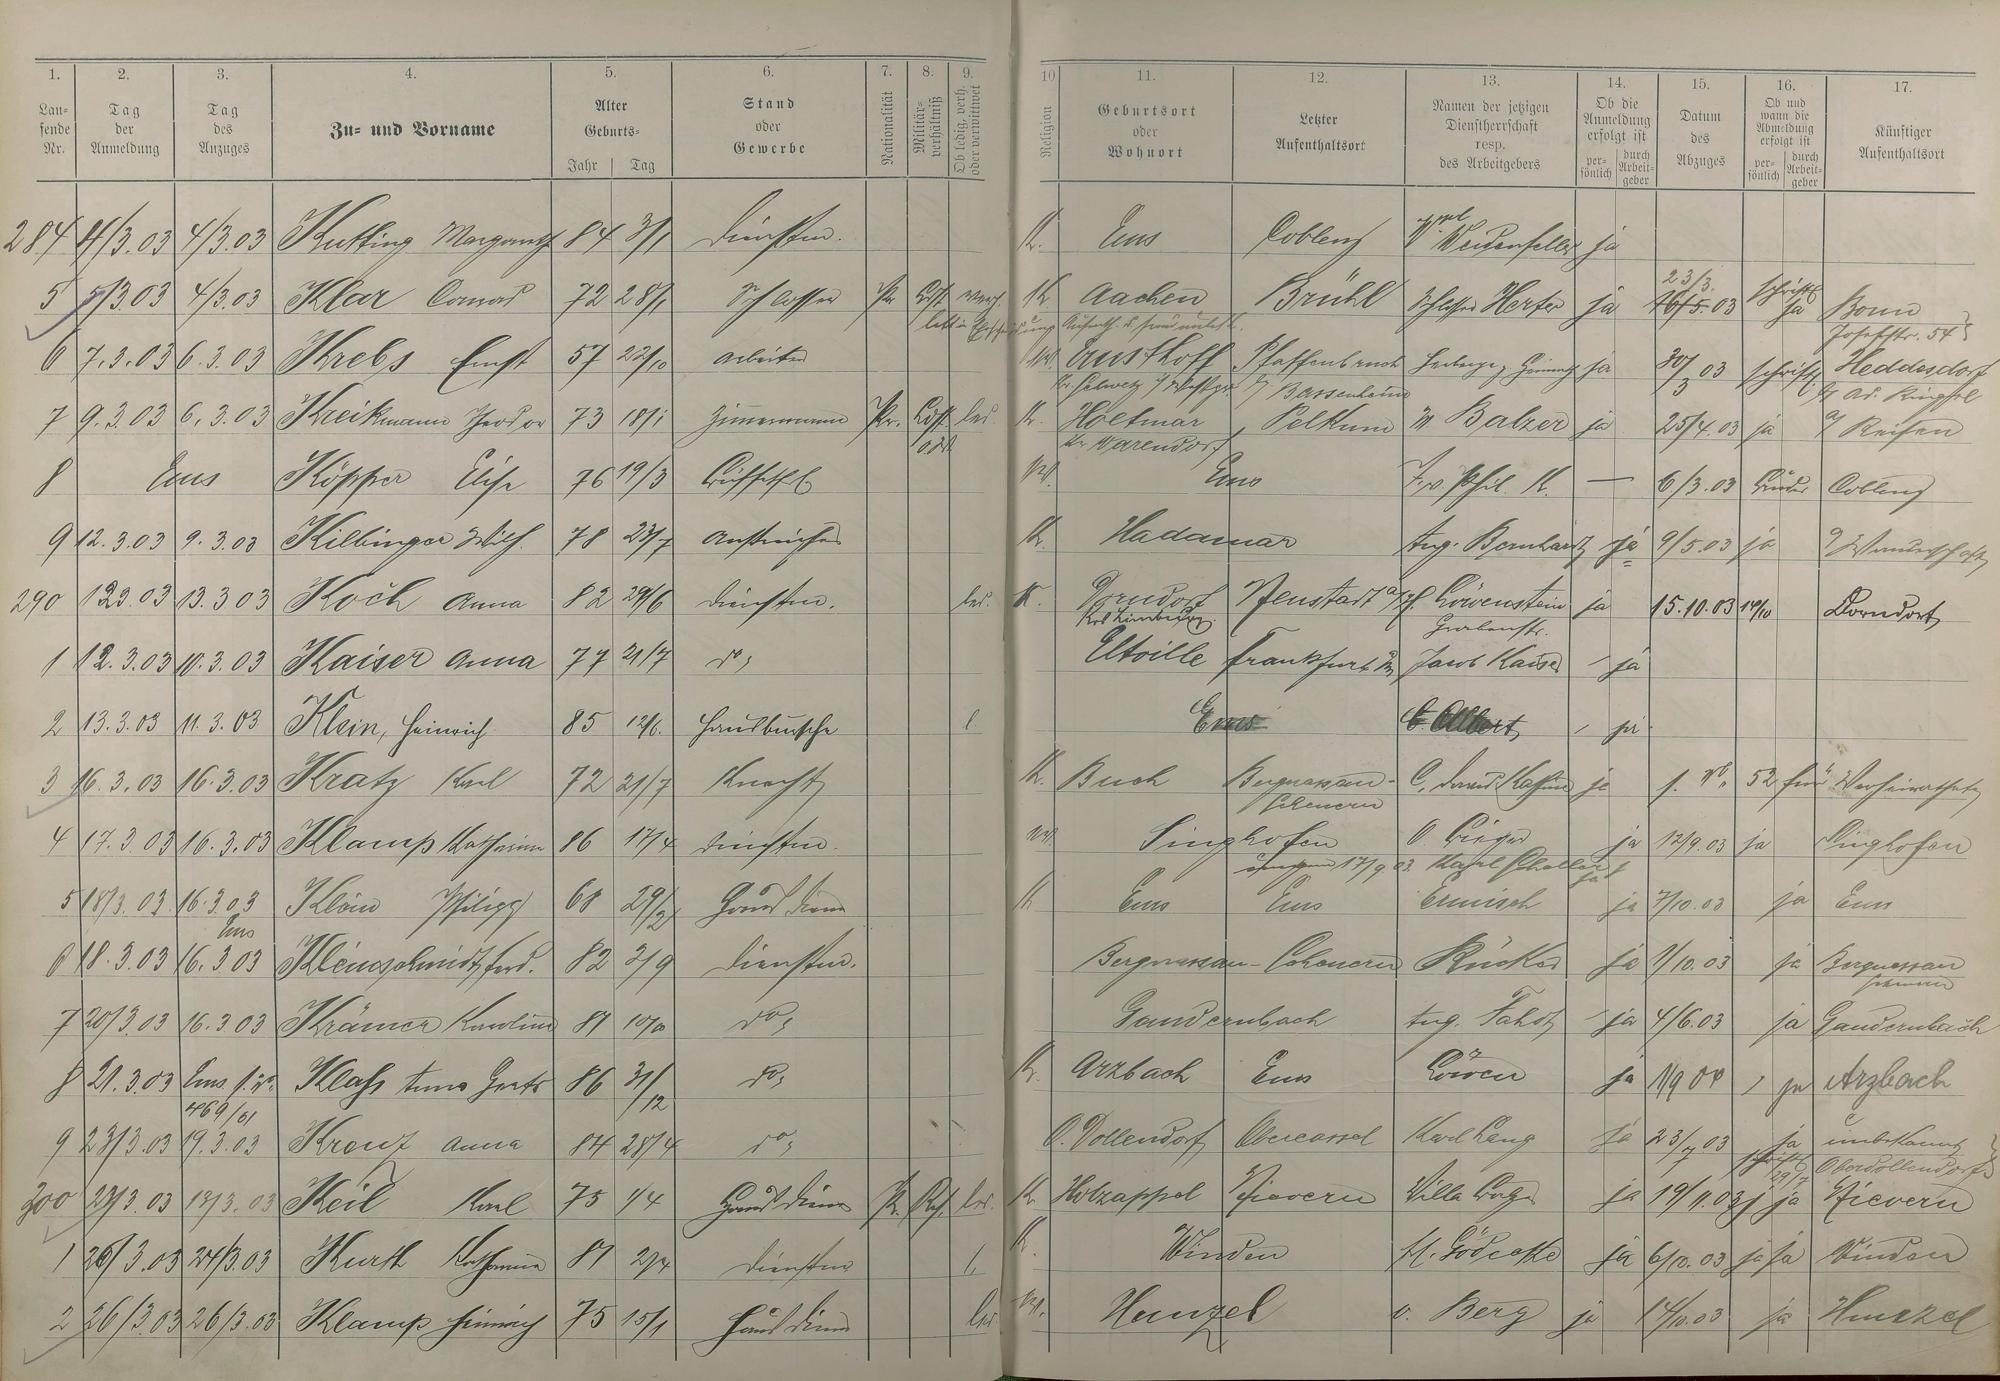 1. 2. 3. 4. 5. 6. 7. 8. 9. 10 11. 12. 13. 14. 15. 16. 17.
Lau- fende Nr.
Tag der Anmeldung
Tag des Anzuges
Zu- und Vorname
Alter Geburts- Jahr Tag
Stand oder Gewerbe
Nationalität
Militär- verhältniß
Ob ledig, verh. oder verwittwet
Religion
Geburtsort oder Wohnort
Letzter Aufenthaltsort
Namen der jetzigen Dienstherrschaft resp. des Arbeitgebers
Ob die Anmeldung erfolgt ist per- sönlich durch Arbeit- geber
Datum des Abzuges
Ob und wann die Abmeldung erfolgt ist per- sönlich durch Arbeit- geber
Künftiger Aufenthaltsort
284 4/3.03 4/3.03 Kutting Margareth 84 3/1 Dienstm. K. Ems Coblenz Weidenfeller ja
5 5/3.03 4/3.03 Klar Conrad 72 28/1 Schlosser Pr Ldst verh. K Aachen Brühl Schlosser Herfer ja 23/3. 16/5.03 schriftl ja Bonn
Josefstr. 54
6 7.3.03 6.3.03 Krebs Ernst 57 22/10 Arbeiter Ernsthoff Pfaffenbruch Herberge z Heimath ja 30/3 03 schriftl. Heddesdorf
Kr. Schwetz Bassenheim
7 9.3.03 6.3.03 Kreikmann Theodor 73 18/1 Zimmermann Pr. Ldst. led. K. Hoetmar Pelkum Balzer ja 25/4.03 ja a/ Reisen
Kr Warendorf
8 Ems Köpper Elise 76 19/3 Büffetfl Ems Phil. K. — 6/3.03 Coblenz
9 12.3.03 9.3.03 Kilbinger Wilh. 78 23/7 Anstreicher K. Hadamar Aug. Bernhardt ja 9/5.03 ja a/ Wanderschaft
290 12.3.03 13.3.03 Koch Anna 82 29/6 Dienstm. led. K. Dorndorf Neustadt a/ Löwenstein ja 15.10.03 14/10 Dorndorf
Krs Limburg. Grabenstr.
1 12.3.03 10.3.03 Kaiser Anna 77 21/7 do, Eltville Frankfurt a/M Jacob Kaiser / ja
2 13.3.03 11.3.03 Klein, Heinrich 85 12/6. Hausbursche l. Ems Albert / ja
3 16.3.03 16.3.03 Kratz Karl 72 21/7 Knecht K. Buch Bergnassau- ja 52 Verheirathet
Scheuern
4 17.3.03 16.3.03 Klamp Katharina 86 17/4 Dienstm. Singhofen O. Rieger ja 12/9.03 ja Singhofen
17/9 03. Karl Scheller ja
5 18/3.03 16.3.03 Klein Philipp 68 29/2 Hausdiener K Ems Ems Ermisch ja 7/10.03 ja Ems
Ems
6 18.3.03 16.3.03 Kleinschmidt, Ferd. 82 2/9 Dienstm. Bergnassau-Scheuern Rücker ja 1/10.03 ja Bergnassau
Scheuern
7 20/3.03 16.3.03 Krämer Karoline 81 10/10 do, Gaudernbach Aug. Fahst / ja 4/6.03 ja Gaudernbach
8 21.3.03 Ems s. No. 469/01 86 31/12 do, K. Arzbach Ems Löwen ja 1/9 04 / ja Arzbach
9 23/3.03 19.3.03 Kreuz Anna 84 28/4 do, O. Dollendorf Obercassel Karl Lang ja 23/7 03 ja unbekannt
schriftl 29/7 Oberdollendorf
300 23/3.03 17/3.03 Keil Karl 75 1/4 Hausdiener Pr. Res. led. K. Holzappel Nievern Villa ja 19/11.03 ja Nievern
1 26/3.03 24/3.03 Kurth Katharina 81 2/4 Dienstm l. K. Winden H. Gödecke ja 6/10.03 ja Winden
2 26/3.03 26/3.03 Klamp Heinrich 75 15/1 Hausdiener led Hunzel v. Berg ja 14/10.03 ja Hunzel